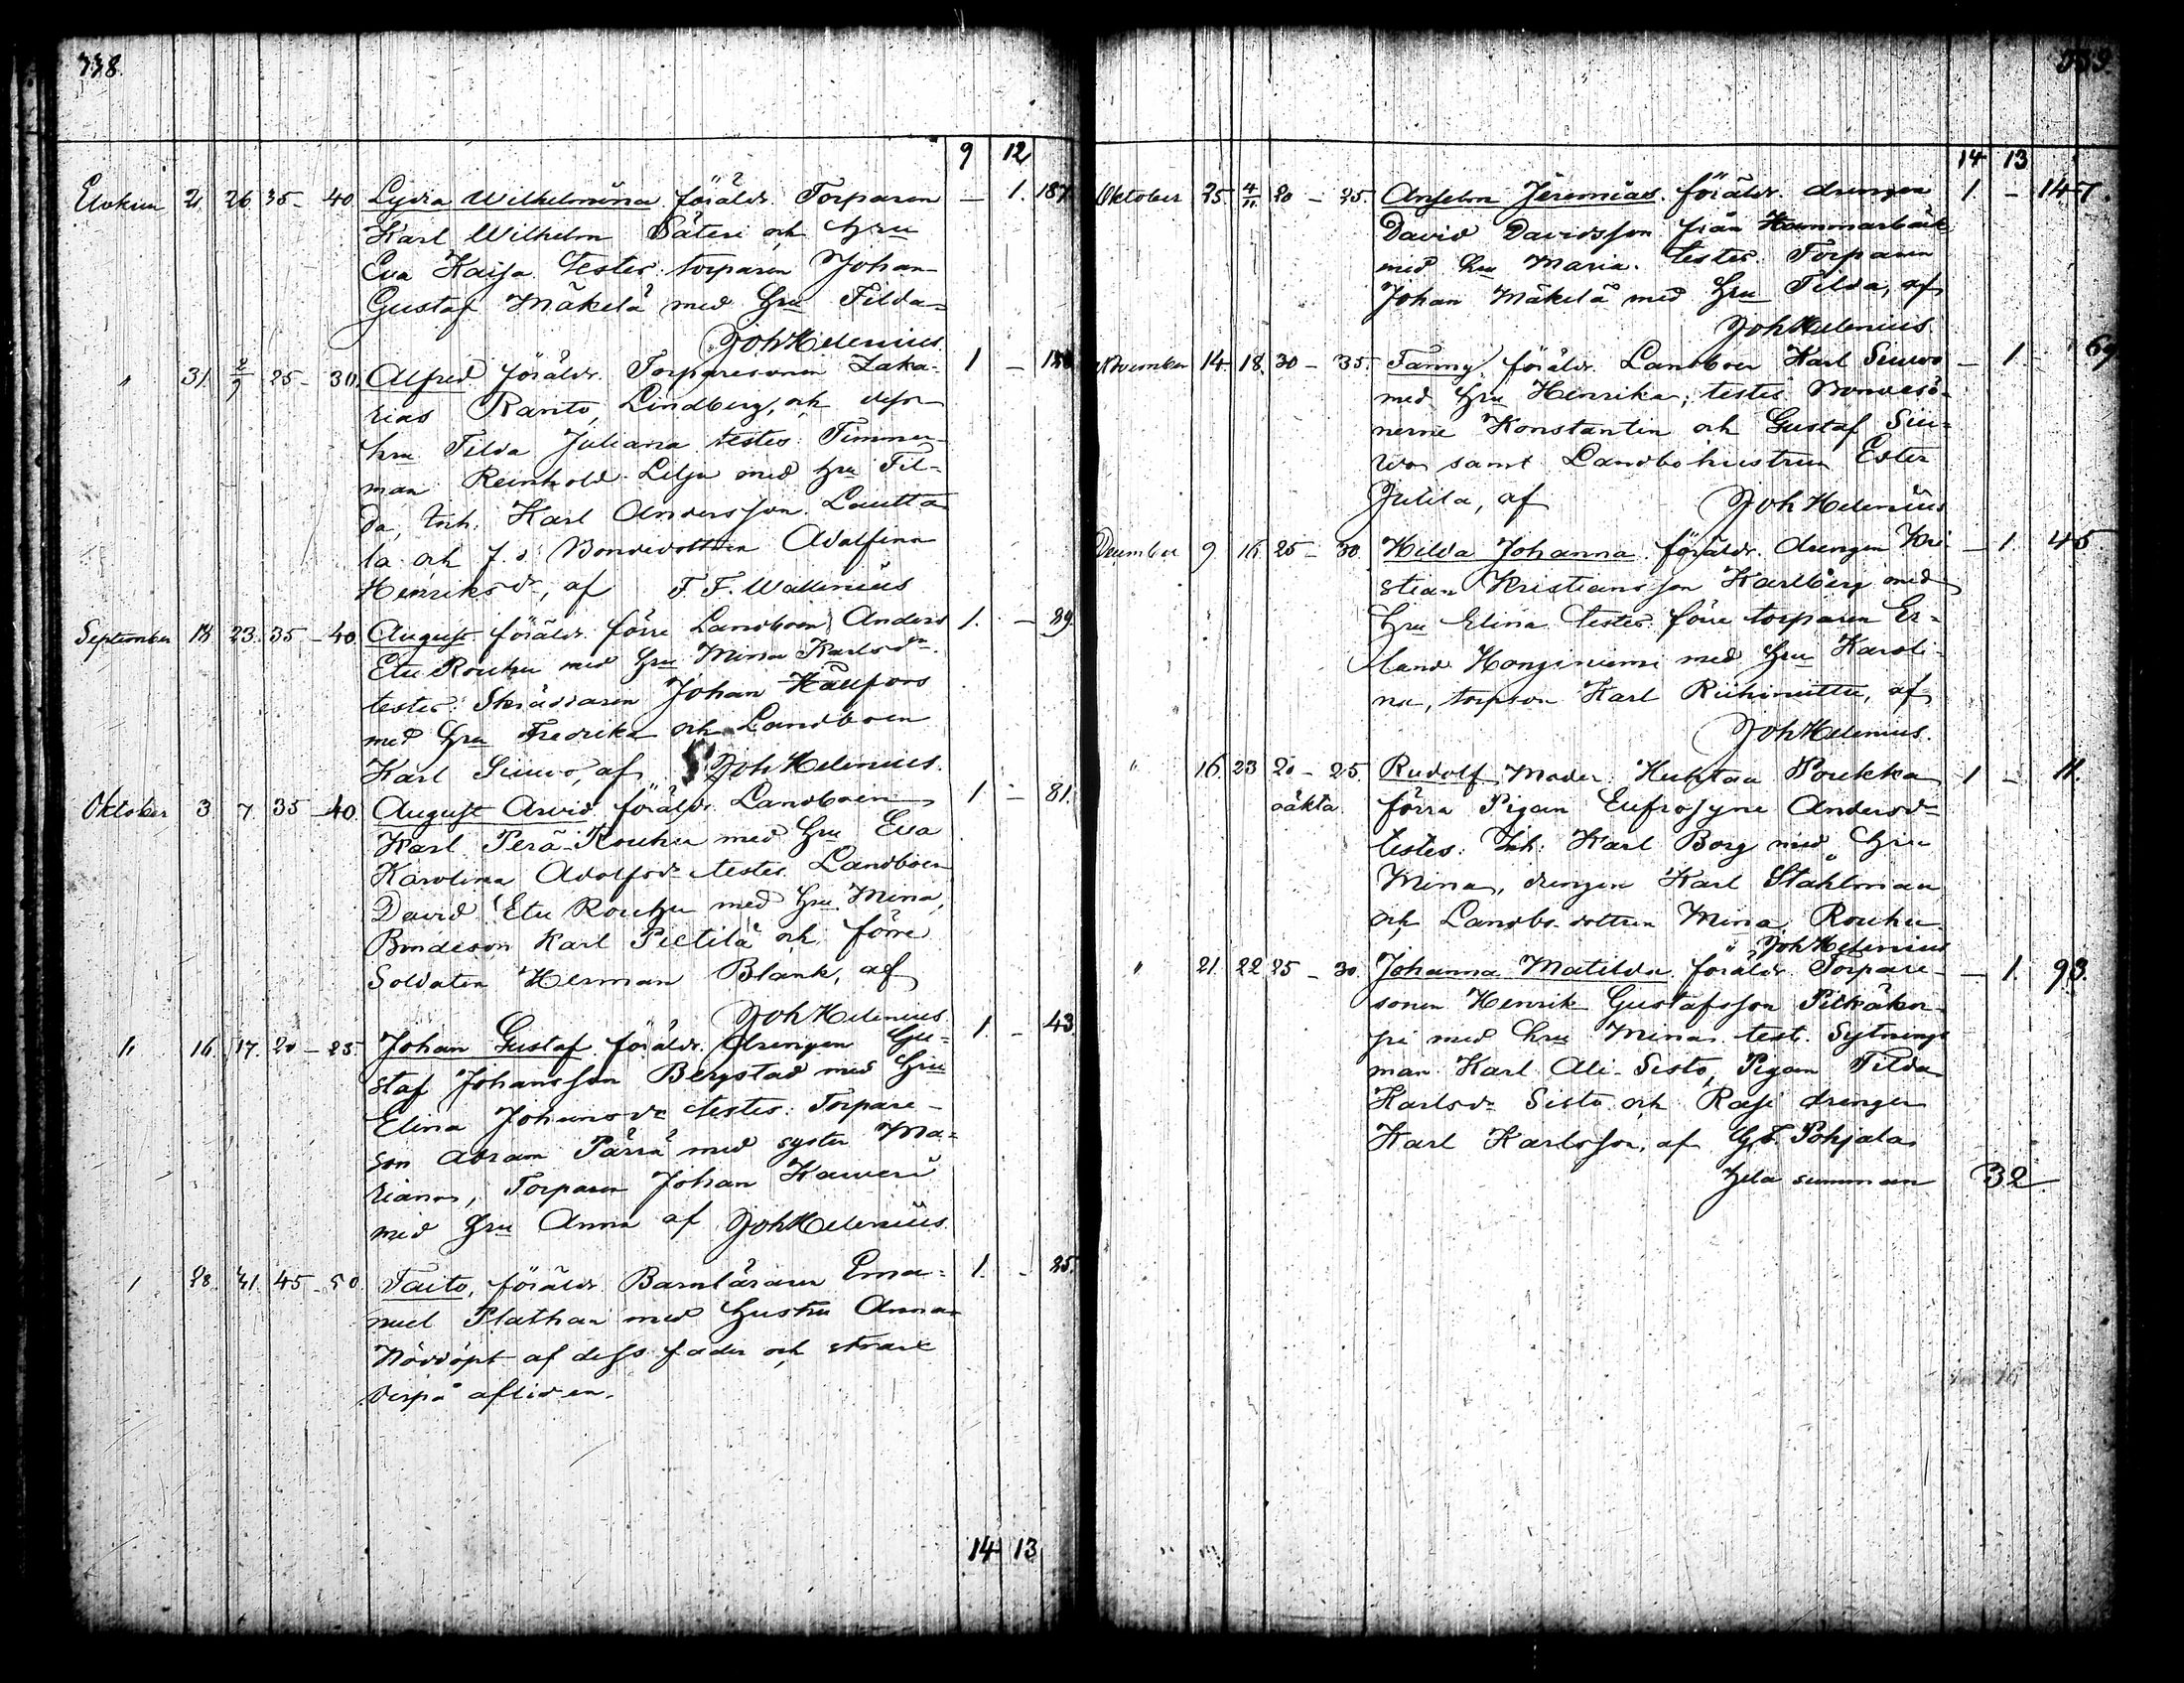 338
9 12
Elokuu 21 26 35 - 40 Lydia Wilhelmina. föräldr. Torparen — 1. 187
Karl Wilhelm Säteri och hru
Eva Kaisa. testes torparen Johan
Gustaf Mäkelä med hru Tilda
Joh Helenius
" 31. 2/9 25 - 30. Alfred föräldr. Torparesonen Zaka- 1 —
rias Ranto, Lindberg, och dess
hru Tilda Juliana testes: Timmer-
man Reinhold Lilja med hru Til-
da, Inh. Karl Andersson Lautta
la och J. d. Bondedottren Adolfina
Henriksdr, af F. F. Wallenius
September 18 23. 35 - 40. August föräldr. förre Landboen Anders 1. — 89.
Etu Rouhu med hru Mina Karlsdr.
testes: Skräddaren Johan Hällfors
med hru Fredrika och Landboen
Karl Siuvo, af Joh Helenius.
Oktober 3. 7. 35 - 40. August Arvid. föräldr. Landboen 1 — 81.
Karl Perä-Rouhu med hru Eva
Karolina Adolfsdr testes Landboen
David Etu Rouhu med hru Mina,
Bondeson Karl Pietilä och förre
Soldaten Herman Blank, af
Joh Helenius
" 16. 17. 20 - 25. Johan Gustaf. föräldr. drengen Gu- 1. - 43
staf Johansson Bergstad med hru
Elina Johansdr testes: Torpare-
son Abram Pärrä med syster Ma-
riana, Torparen Johan Kaweri
med hru Anna af Joh Helenius.
" 28. 31. 45 - 50. Taito, föräldr. Barnläraren Ema- 1. - 25.
nuel Plathan med hustru Anna
Nöddöpt af dess fader och strax
derpå afliden.
14 13
339.
14 13
Oktober 25. 4/11 20 - 25. Anselm Jeremias. föräldr. drengen 1. - 147.
David Davidsson från Hammarbäck
med hru Maria. testes. Torparen
Johan Mäkelä med hru Tilda, af
Joh Helenius.
November 14. 18. 30 - 35. Fanny. föräldr. Landboen Karl Siuvo — 1. 69
med hru Henrika, testes Bondesö-
nerne Konstantin och Gustaf Siu-
vo samt Landbohustrun Ester
Julila, af Joh Helenius
December 9 16 25 - 30. Hilda Johanna. föräldr. drengen Kri- — 1. 45
stian Kristiansson Karlberg med
hru Elina testes förre torparen Er-
land Honginiemi med hru Karoli-
na, torpson Karl Riihimittu, af
Joh Helenius.
" 16. 23 20 - 25. Rudolf. Moder: Huhtaa Poukka 1 - 11.
oäkta. förra Pigan Eufrosyne Andersdr
testes: Inh. Karl Borg med hru
Mina, drengen Karl Ståhlman
och Landbo dottren Mina Rouhu
" Joh Helenius
" 21. 22 25 - 30. Johanna Matilda. föräldr. Torpare- — 1. 93.
sonen Henrik Gustafsson Pitkäkor-
pi med hru Mina test. Sytnings
man Karl Ali-Sisto, Pigan Tilda
Karlsdr Sisto och Rasi drengen
Karl Karlsson, af G. F. Pohjala
Hela summan 32